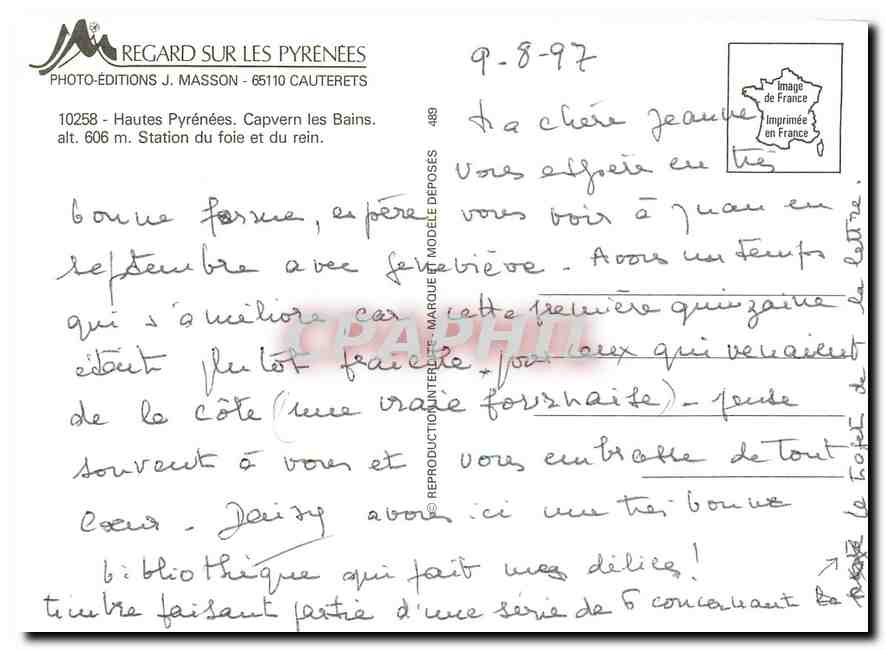 REGARD SUR LES PYRÉNÉES
PHOTO-ÉDITIONS J. MASSON - 65110 CAUTERETS
10258 - Hautes Pyrénées. Capvern les Bains.
alt. 606 m. Station du foie et du rein.
© REPRODUCTION INTERDITE - MARQUE ET MODÈLE DÉPOSÉS 489
Image
de France
Imprimée
en France
9-8-97
Ma chère Jeanne
vous espère en très
bonne forme, espère vous voir à Juan en
septembre avec Geneviève. Avons un temps
qui s'améliore car cette première quinzaine
étant plutôt fraîche, pour ceux qui venaient
de la côte (une vraie fournaise) - pense
souvent à vous et vous embrasse de tout
cœur - Daisy avons ici une très bonne
bibliothèque qui fait mes délices!
timbre faisant partie d'une série de 6 concernant
le trajet de la lettre.
CPAPHIL